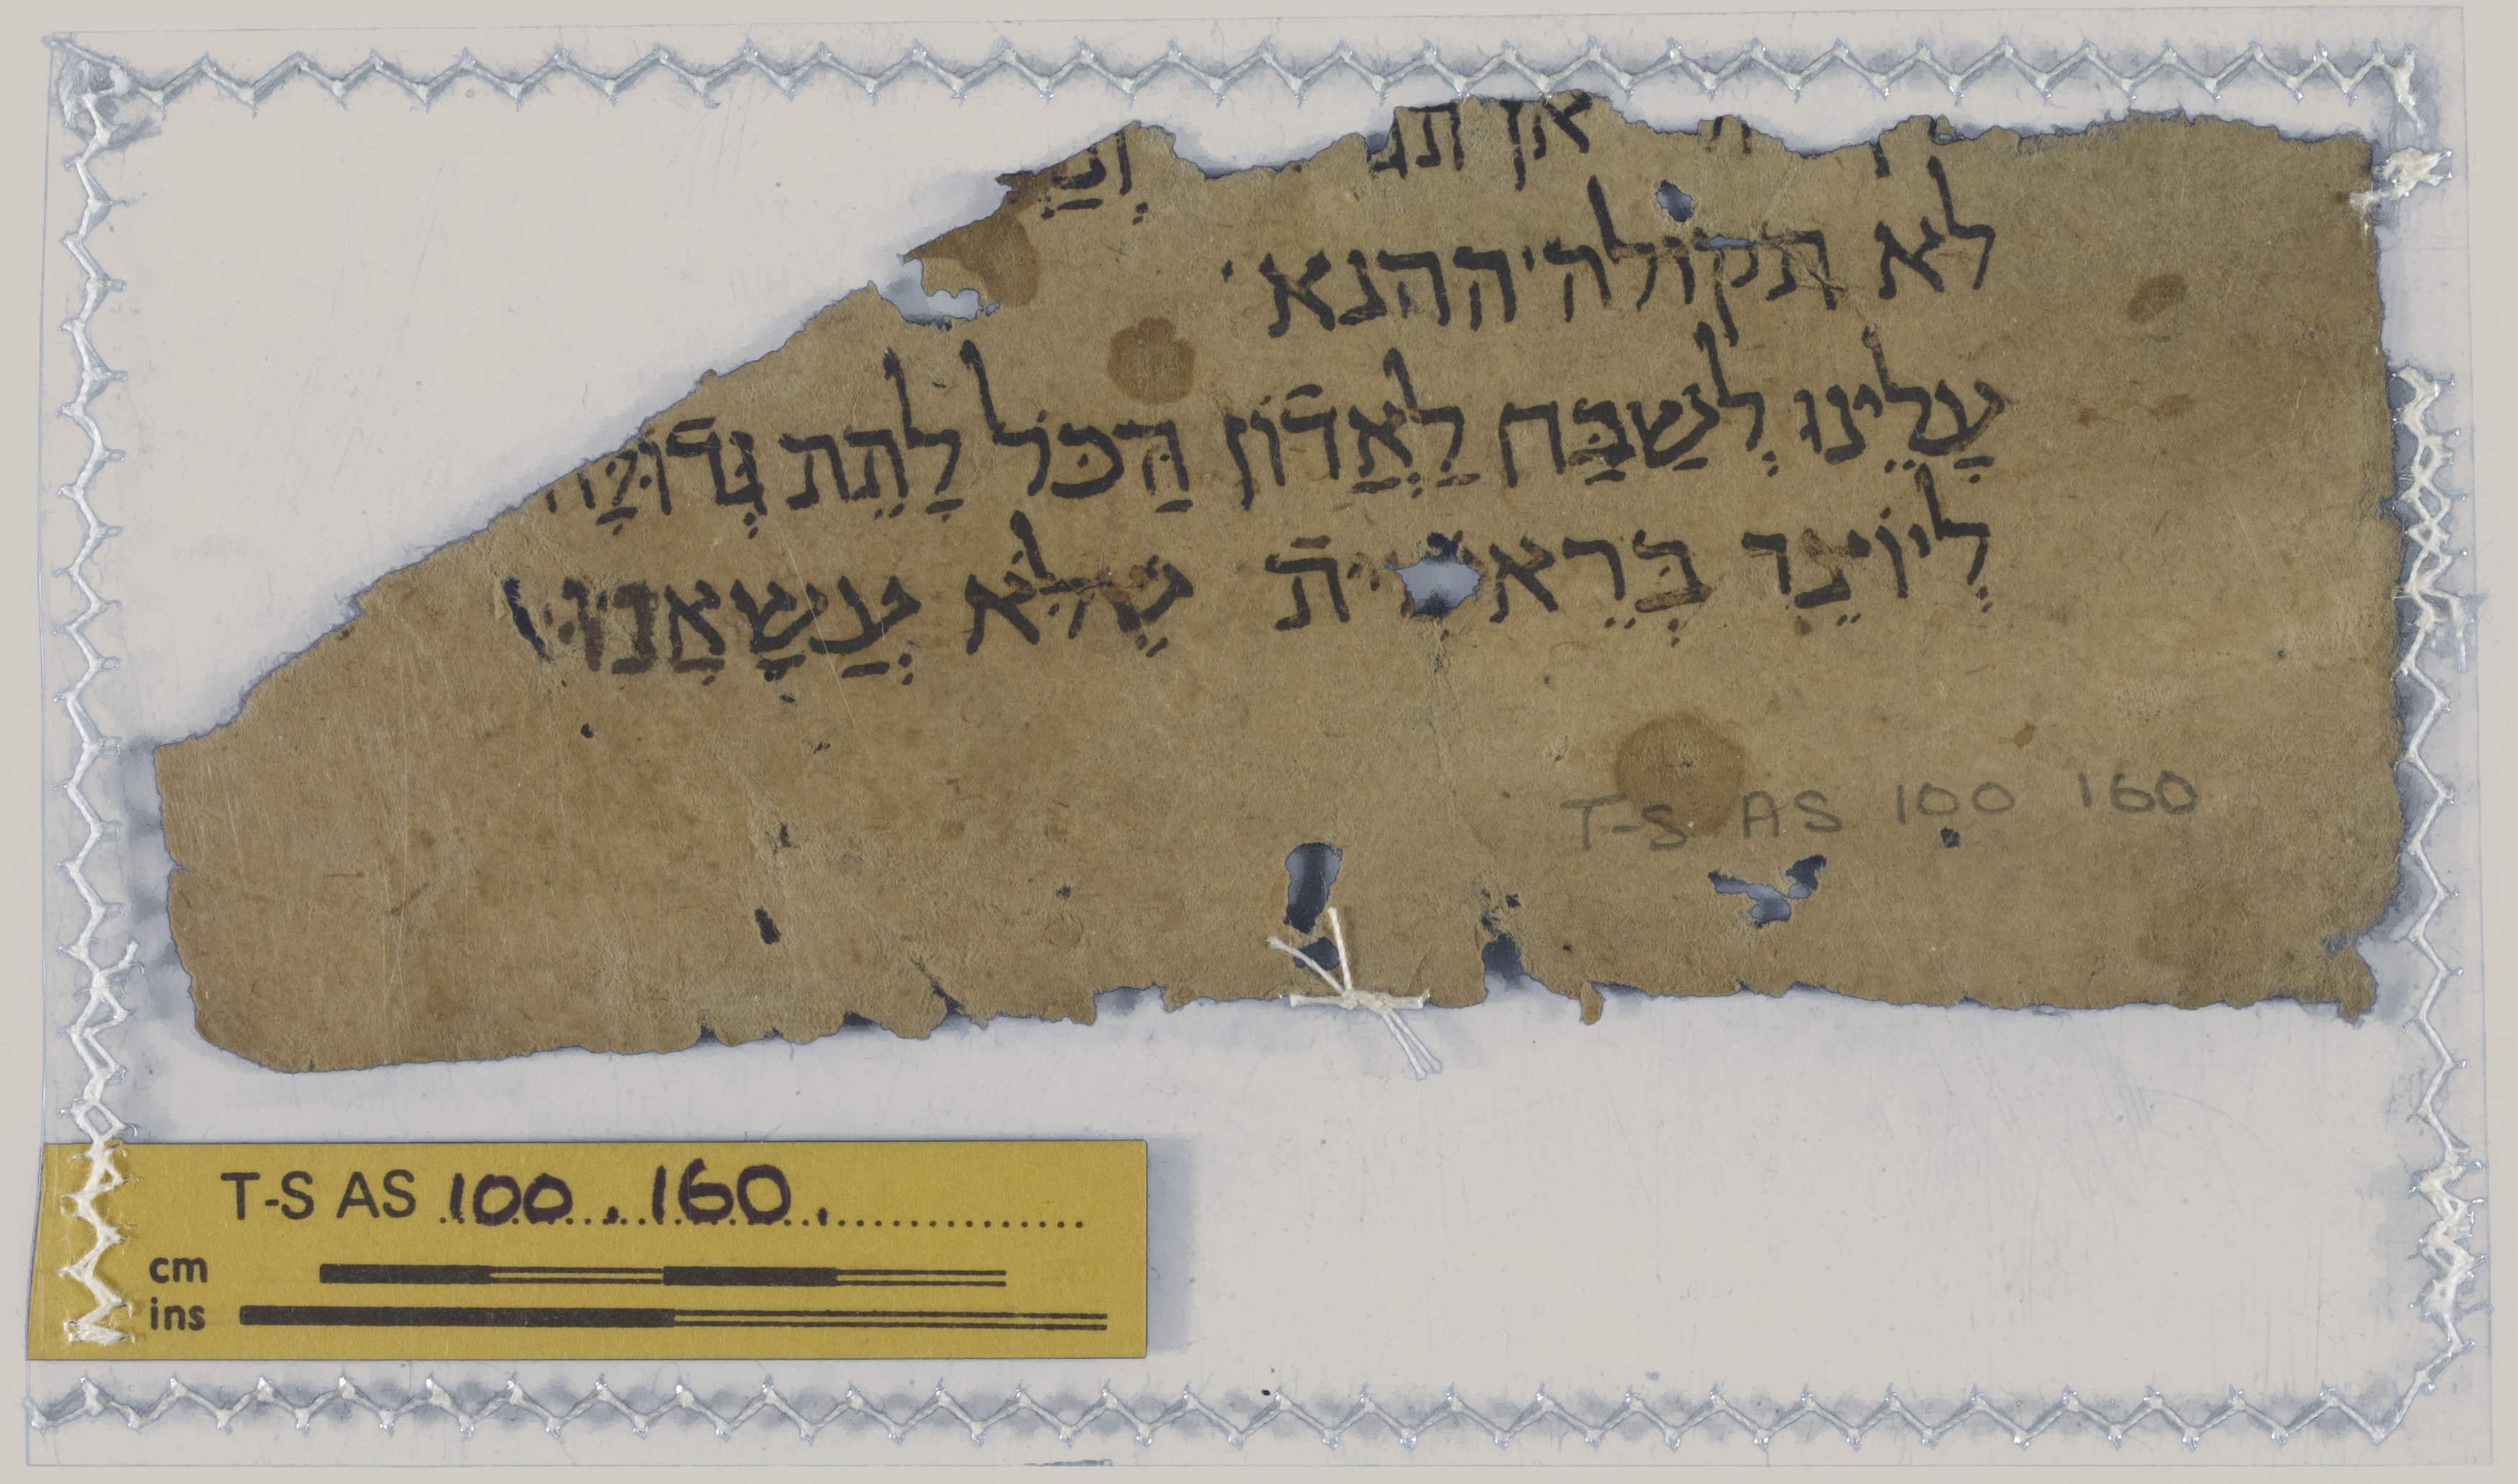 אן תג
לא תקולה ההנא
עָלֵינוּ לְשַׁבֵּח לַאֲדוֹן הַכֹּל לָתֵת גְּדוּלָּה
לְיוֹצֵר בְּרֵאשִׁית שֶׁלֹּא עֲשָׂאַנוּ
T-S AS 100 160
T-S AS 100 . 160 .
cm
ins